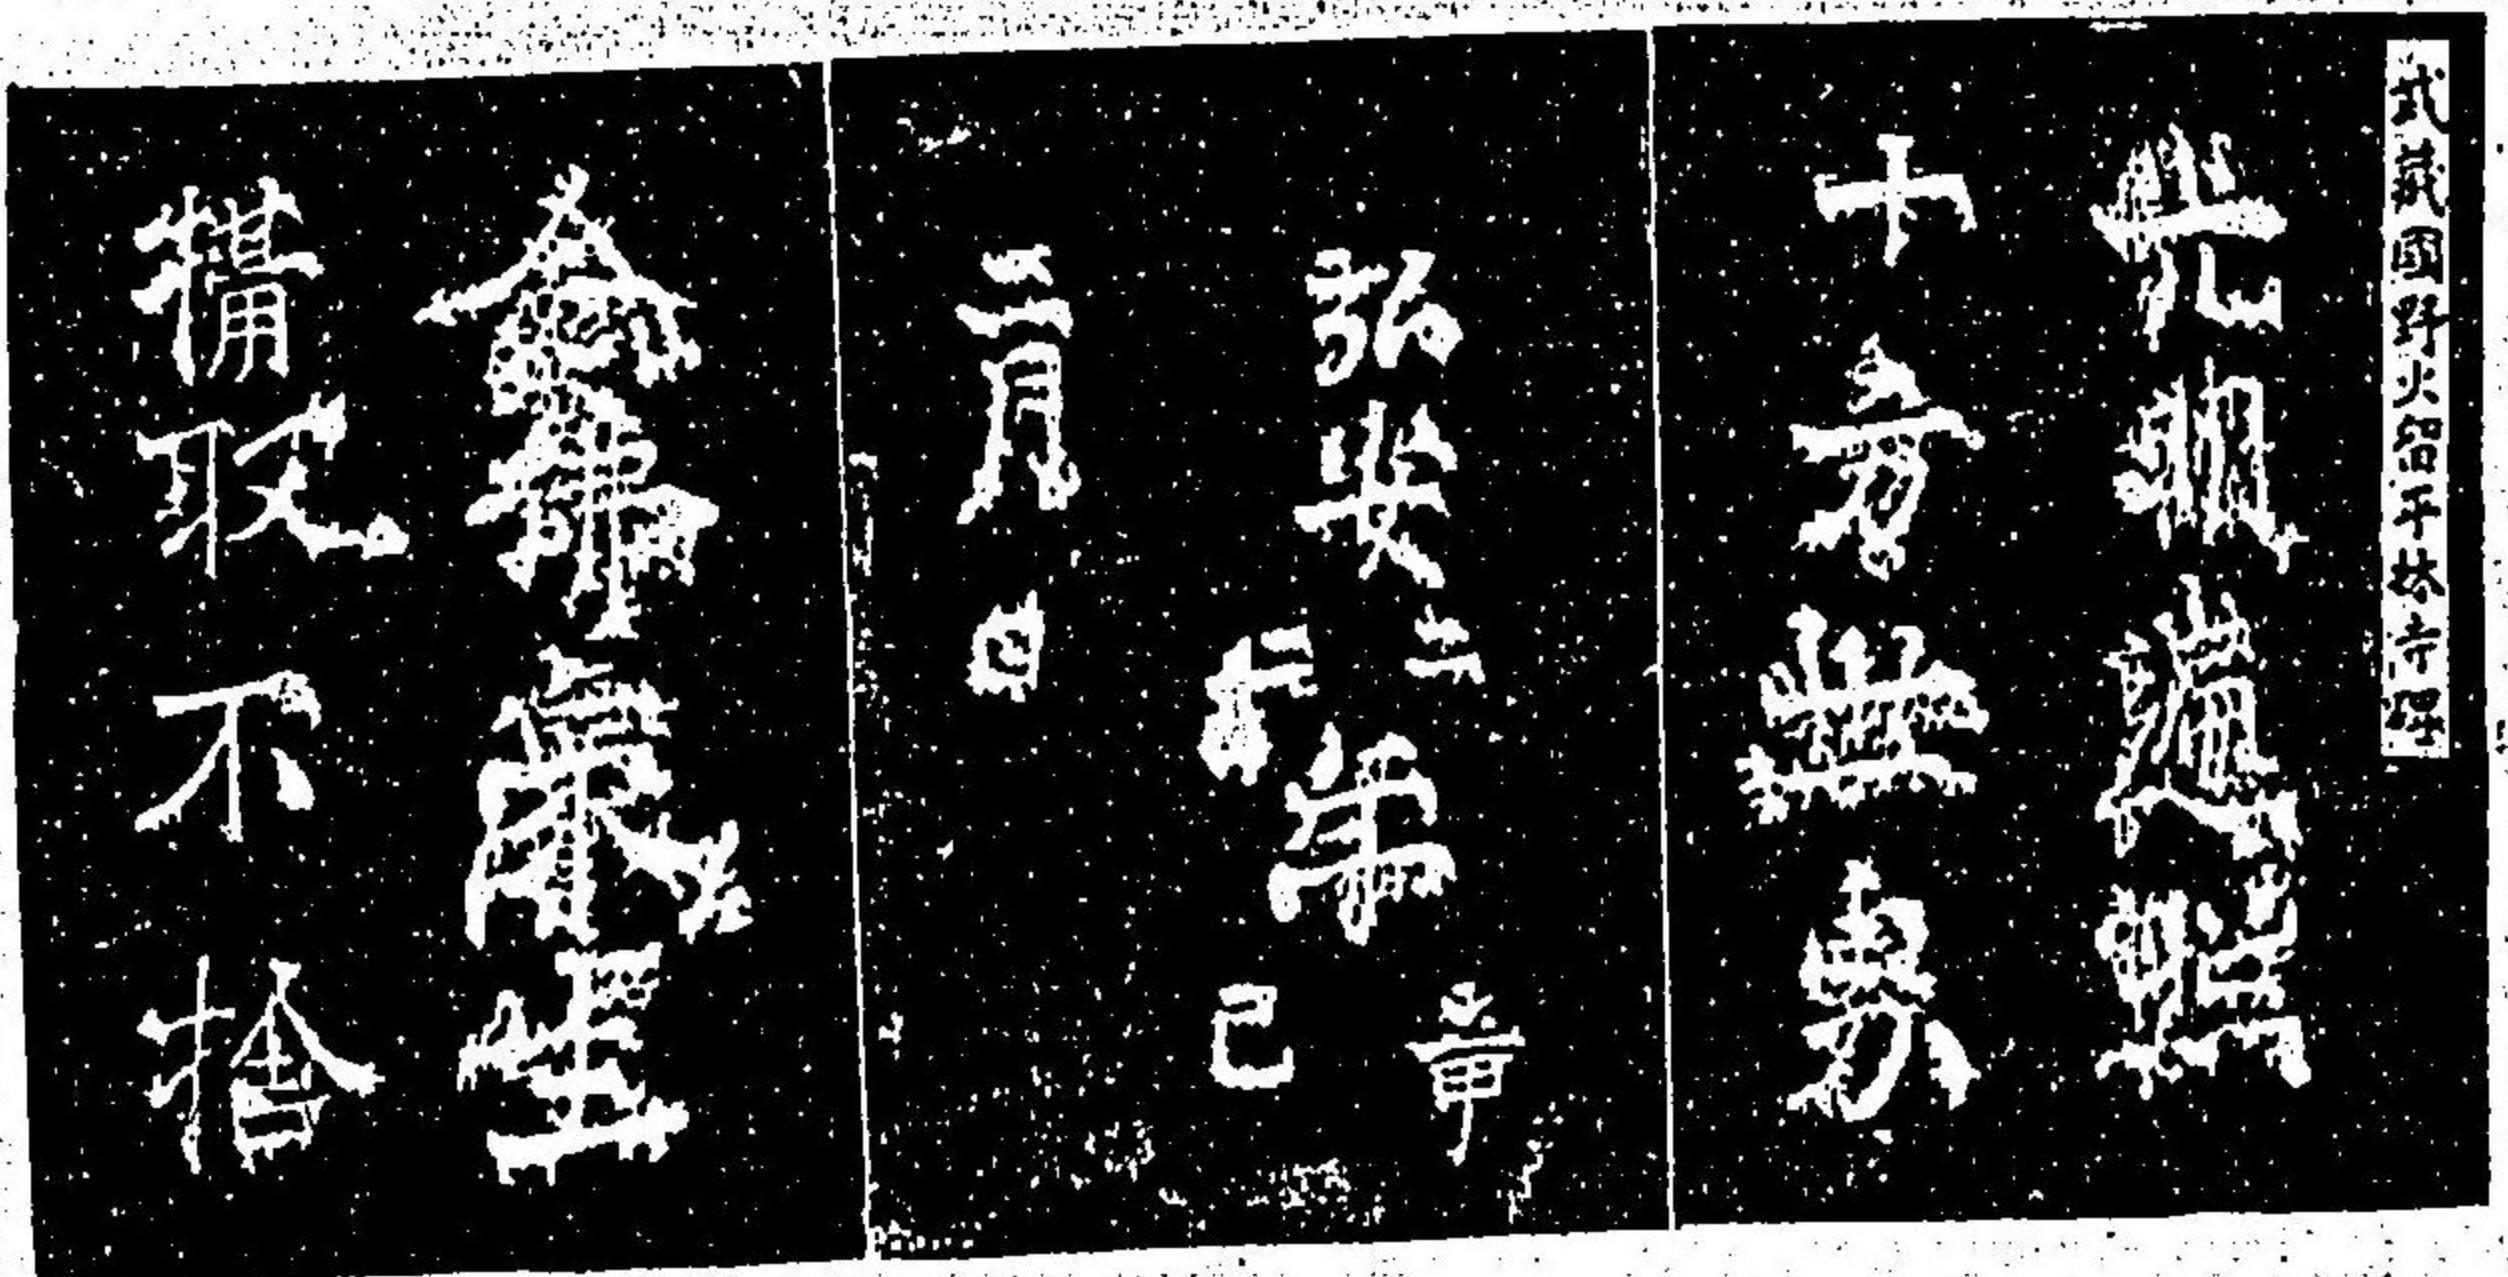 武蔵国野火留平林寺碑
光明遍照
十方世界
弘安二二年辛巳
二月日
念佛衆生
摂取不捨